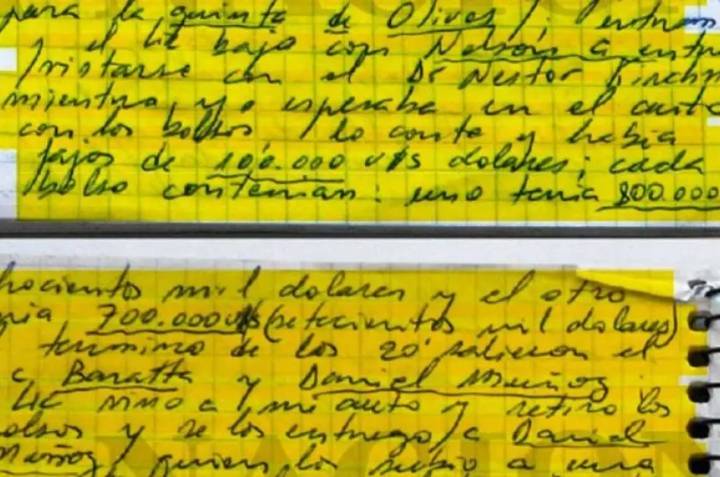 para la quinta de Olivos /. entram
el Lic bajo con Nelson a entre
/vistarse con el Dr Nestor Kirchn
mientra, yo esperaba en el auto
con los bolsos / lo conte y habia
fajos de 100.000 u/s dolares; cada
bolso contenian: uno tenia 800.000
hocientos mil dolares y el otro
nia 700.000u/s (setecientos mil dolares)
termino de los 20' salieron el
c Baratta y Daniel Muñoz
Lic vino a mi auto y retiro los
olsos y se los entrego / a Daniel
Muñoz / quien los subio a una